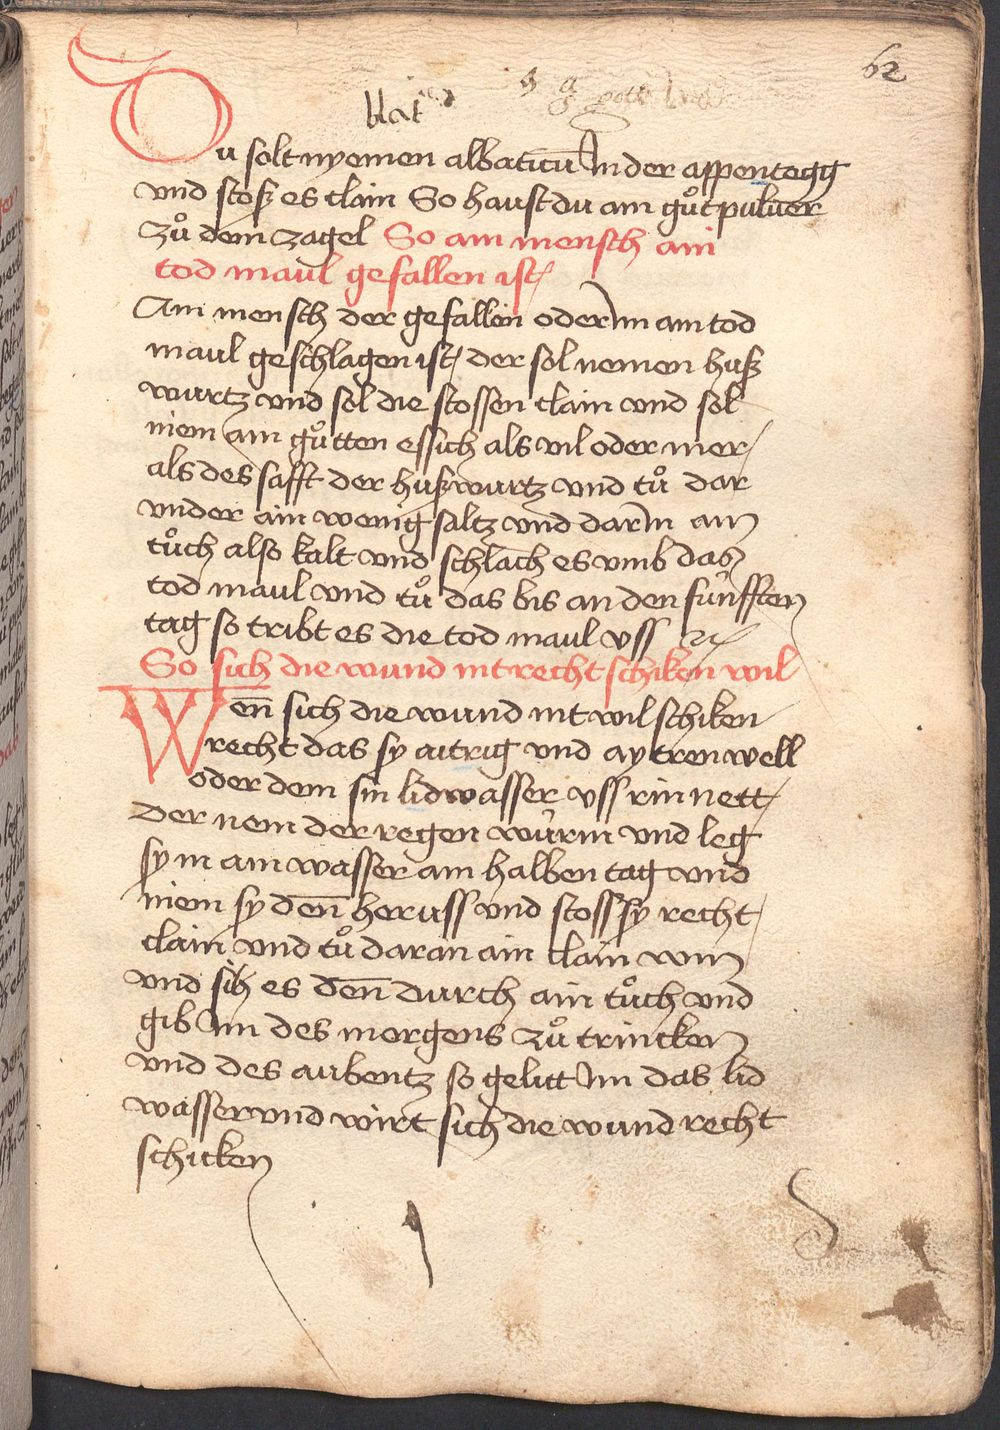 62
blat
Du solt nyemen albaticū In der appentegg
vnd stosß es clain So haust du ain gůt puluer
zů dem zagel So ain mensch ain
tod maul gefallen ist
Ain mensch der gefallen oder im ain tod
maul geschlagen ist der sol nemen husß
wurtz vnd sol die stossen clain vnd sol
niem ain gůtten essich als vil oder mer
als des safft der husßwurtz vnd tů dar
vnder ain wenig saltz vnd darin ain
tůch also kalt vnd schlach es vmb das
tod maul vnd tů das bis an den fünfften
tag so tribt es die tod maul vss
So sich die wund nit recht schiken wil
Wen̄ sich die wund nit wil schiken
recht das sy aitrig vnd aytren well
oder dem sin lidwasser vss rinnett
Der nem der regen würm vnd leg
sy in ain wasser ain halben tag vnd
niem sy den̄ heruss vnd stoss sy recht
clain vnd tů daran ain clain win
vnd sih es den̄ durch ain tůch vnd
gib im des morgens zů trincken
vnd des aubentz so gelitt im das lid
wasser vnd wirt sich die wund recht
schicken